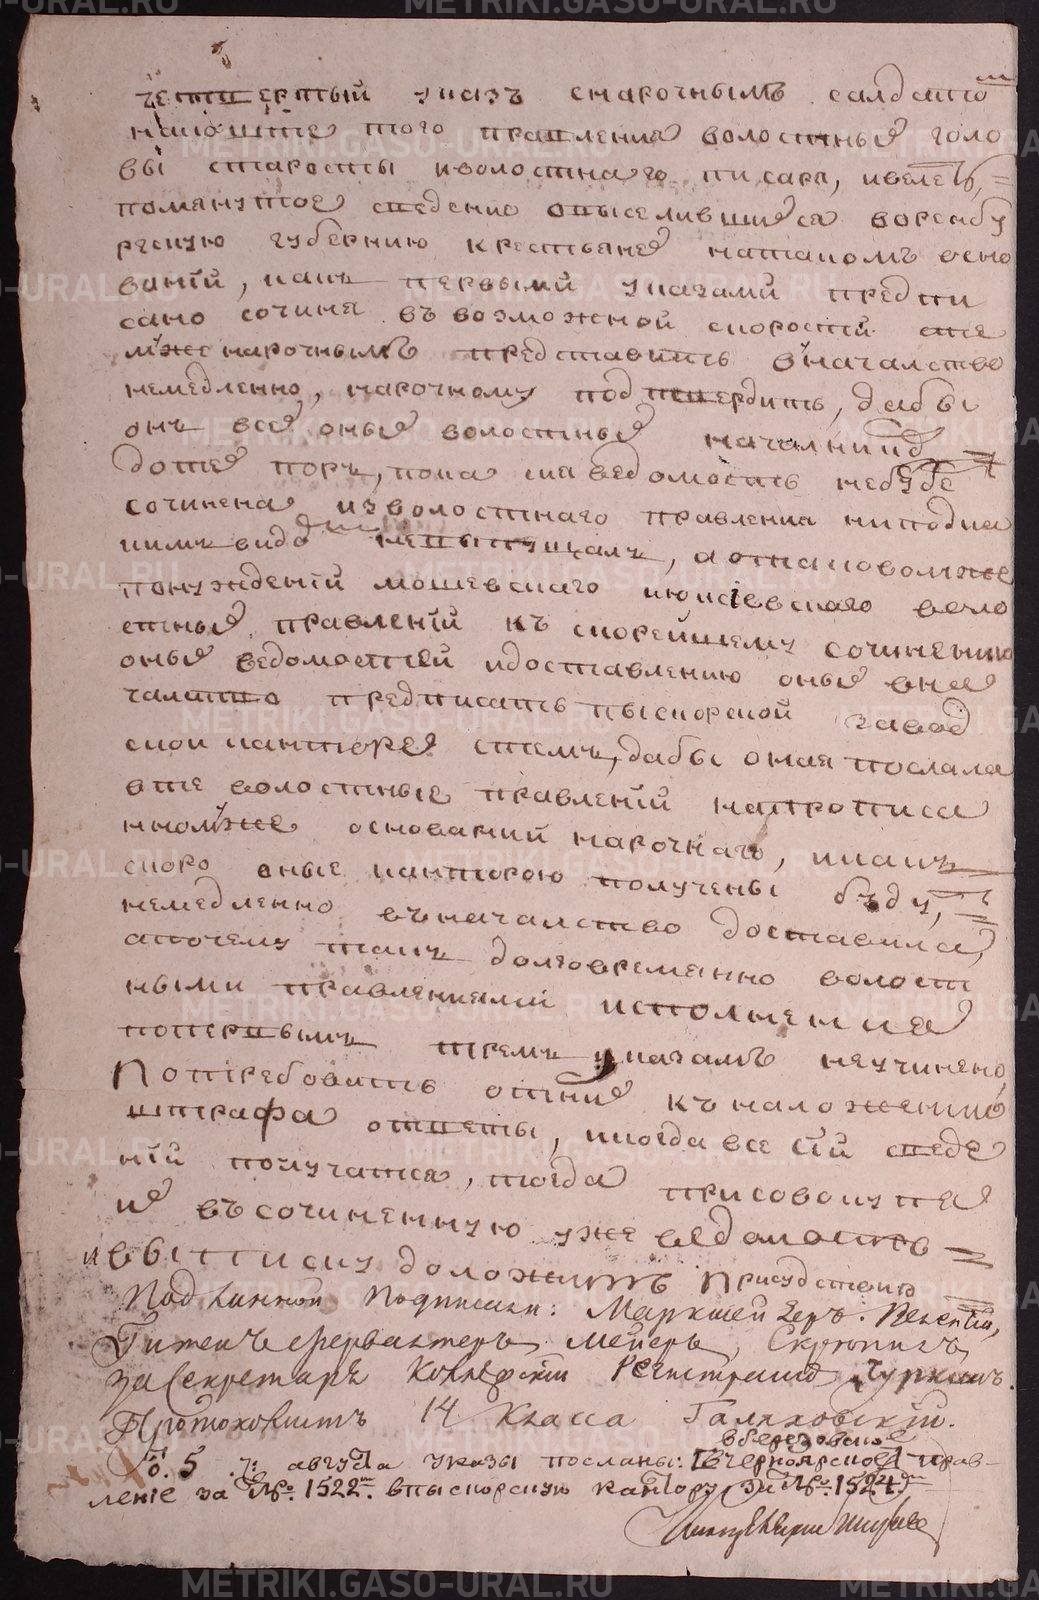 четвертый указъ снарочнымъ салдатомъ
напомня того правления волостныя голо
вы старосты иволостнаго писаря, ивелеть,=
помянутое сведение овыселившихся воренбу
ргскую губернию крестьянехъ натакомъ осно
ваній, какъ первыми указами предпи
сано сочиня въ возможной скорости сте
мъже нарочнымъ представить вначалство
немедленно, нарочному подтвердить, дабы
онъ всехъ оныхъ волостныхъ началниковъ
дотехъ поръ, пока ша ведомость небуде
сочинена изволостнаго правления ниподка
кимъ видомъ невыпущалъ, а отаковомже
понужденій мошевскаго июксеевскаго воло
стныхъ правленій къ скорейшему сочинению
оныхъ ведомостей идоставлению оныхъ вна
чалство предписать пыскорской завод
ской канторе стемъ, дабы оная послала
вте волостные правленій напрописа
нномъже основаній нарочнаго, икакъ
скоро оные канторою получены будутъ,=
немедленно въначалство доставила,
апочему такъ долговременно волост
ными правлениями исполнения
попервымъ тремъ указамъ неучинено,
Потребовать отнихъ къ наложению
штрафа ответы, икогда все сій сведе
ній получатся, тогда присовокупя
ихъ въсочиненную уже ведомость=
ивыписку доложить Присудствию
Подлинной подписали: Маркшейдеръ.
Гитенъ ферваютеръ Мейеръ,
за Секретаря Коллежскій Регистраторъ Чуркинъ.
Протоколистъ 14 класса Галяховскій.
вберезовское
По. 5 .: августа указы посланы: Вчерноярское прав-
леніе за №. 1522.м впыскорскую кантору за №. 1524.м